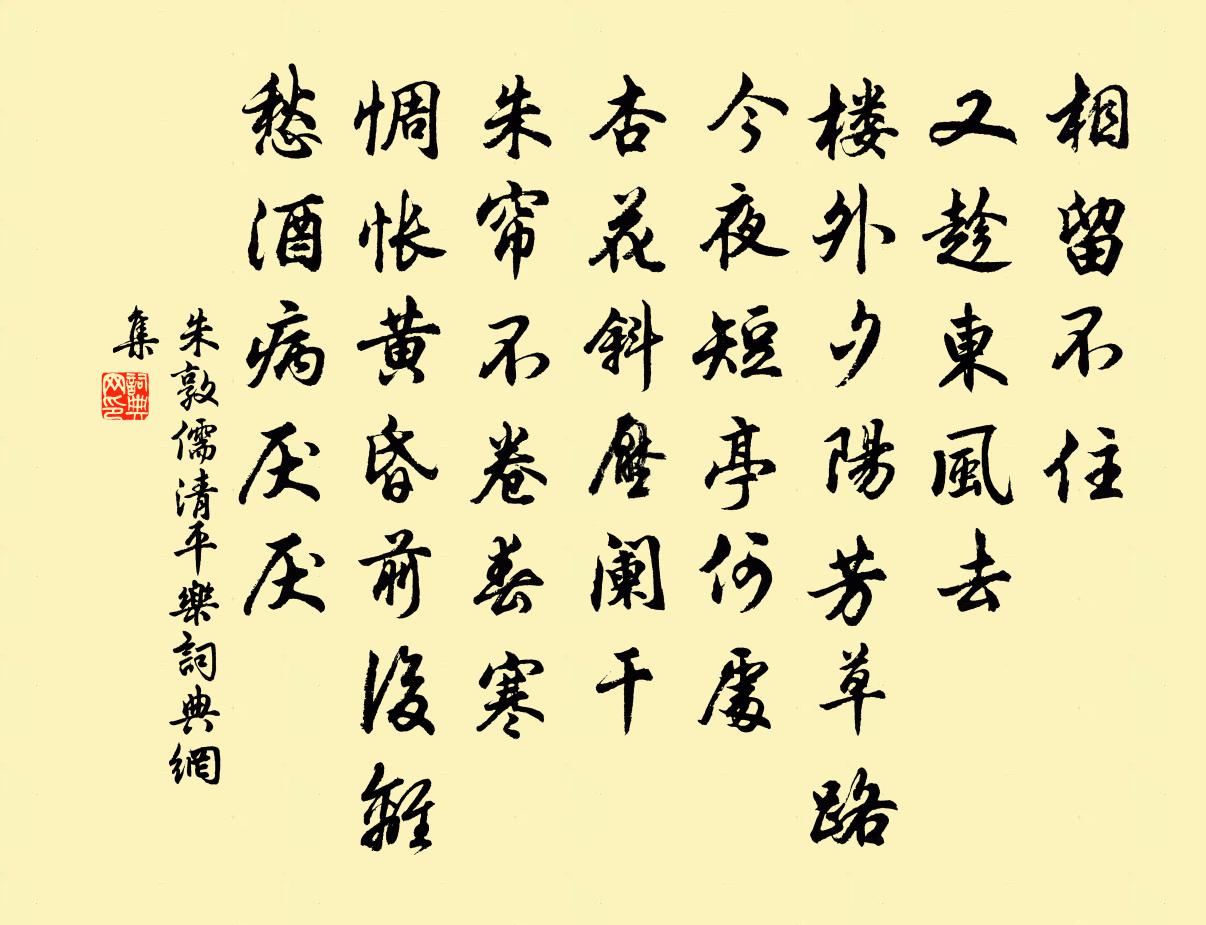 相留不住
又趁東風去
楼外夕陽芳草路
今夜短亭何處
杏花斜壓阑干
朱帘不卷春寒
惆怅黄昏前後
離愁酒病厌厌
朱敦儒清平樂詞典網
集
詞典網印